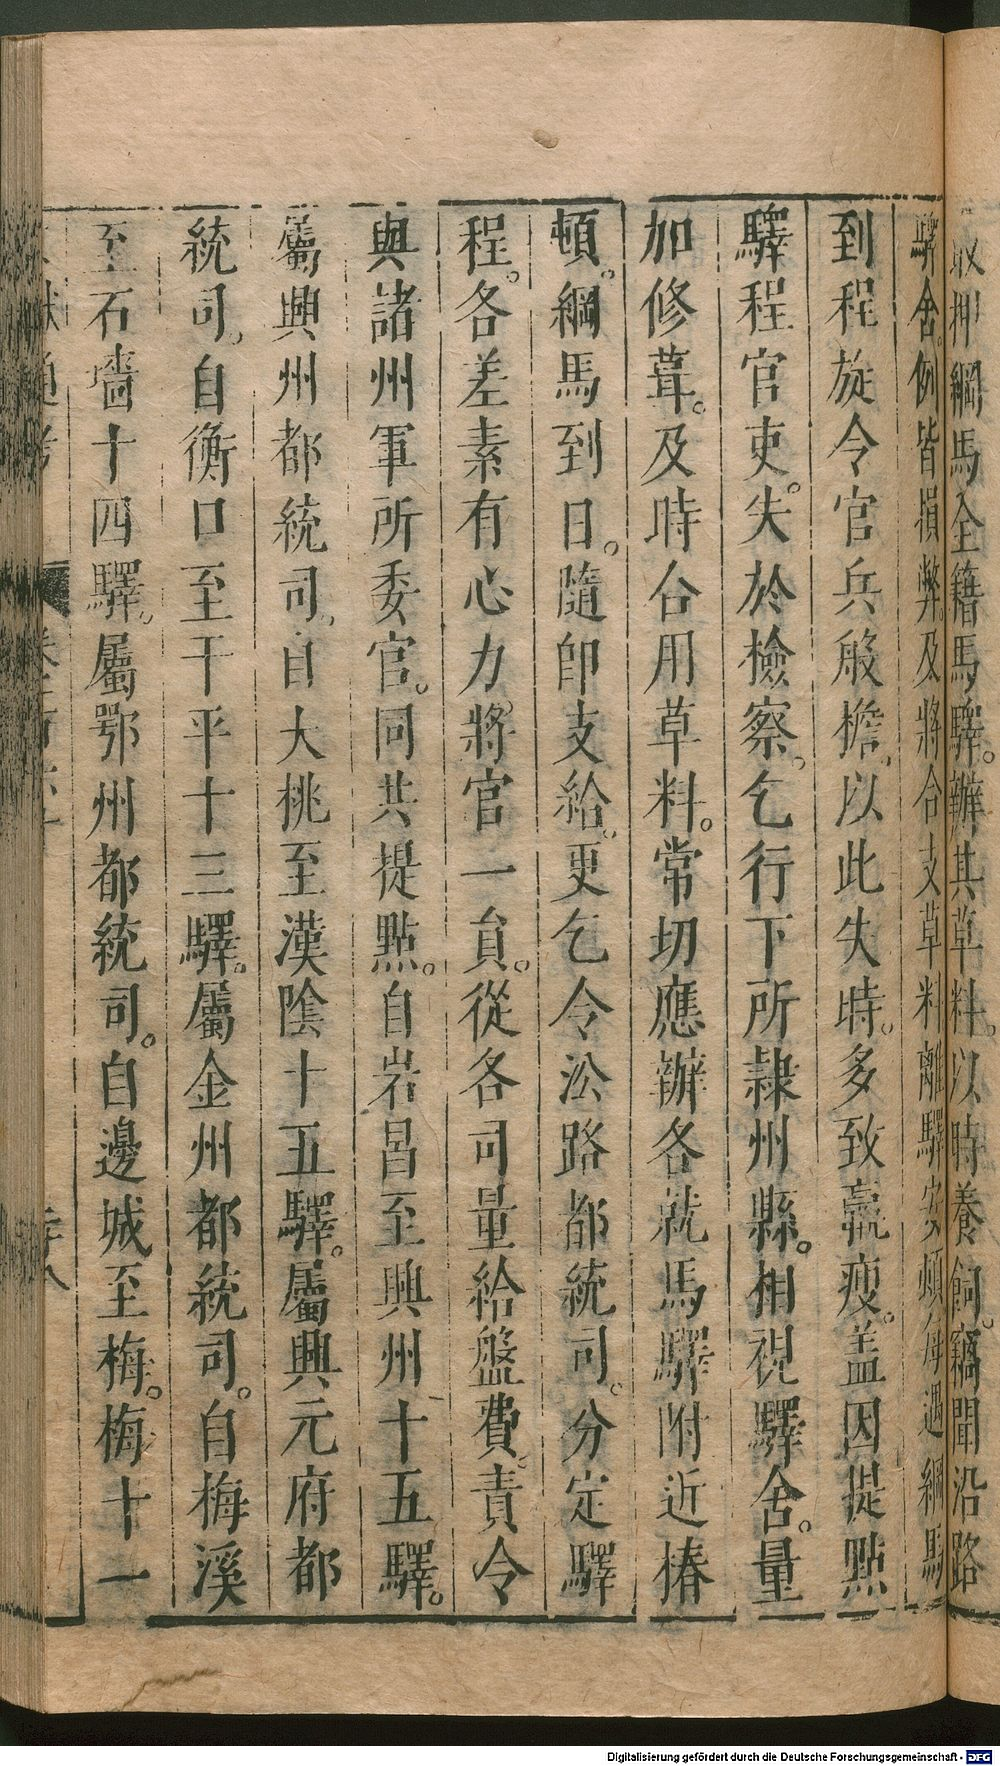 取押綱馬全籍馬驛。辦其草料。以時養飼。竊聞沿路
驛舍。例皆損弊。及將合支草料離驛安頓每遇綱馬
到程旋令官兵般擔。以此失時。多致羸瘦。盖因提點
驛程官吏。失於檢察。乞行下所隷州縣。相視驛舍。量
加修葺。及時合用草料。常切應辦各就馬驛附近椿
頓。綱馬到日。隨即支給。更乞令㳂路都統司。分定驛
程。各差素有心力。將官一貟。從各司量給盤費。責令
與諸州軍所委官。同共提點。自岩昌至興州十五驛。
屬興州都統司。自大桃至漢陰十五驛。屬興元府都
統司。自衡口至干平十三驛。屬金州都統司。自梅溪
至石墻十四驛。屬鄂州都統司。自邊城至梅。梅十一
文獻通考
卷之一百六十
六十八
Digitalisierung gefördert durch die Deutsche Forschungsgemeinschaft - DFG